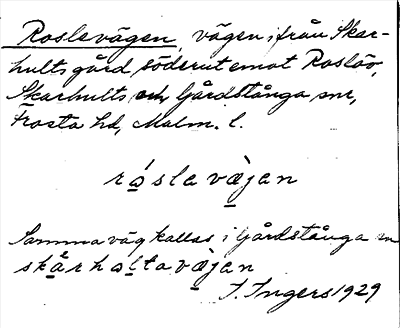 Roslevägen, vägen, från Skar-
hults gård söderut emot Roslöv,
Skarhults och Gårdstånga snr,
Frosta hd, Malm. l.
róslavæjan
Samma väg kallas i Gårdstånga sn
skårhaltavæjan
I. Ingers 1929